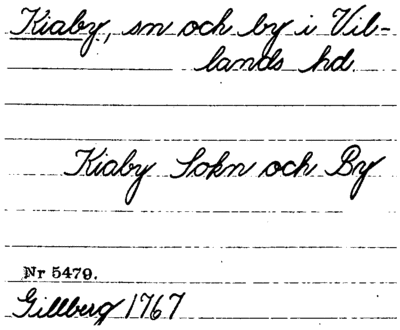 Kiaby, sn och by i Vil-
lands hd.
Kiaby Sokn och By
Nr 5479.
Gillberg 1767